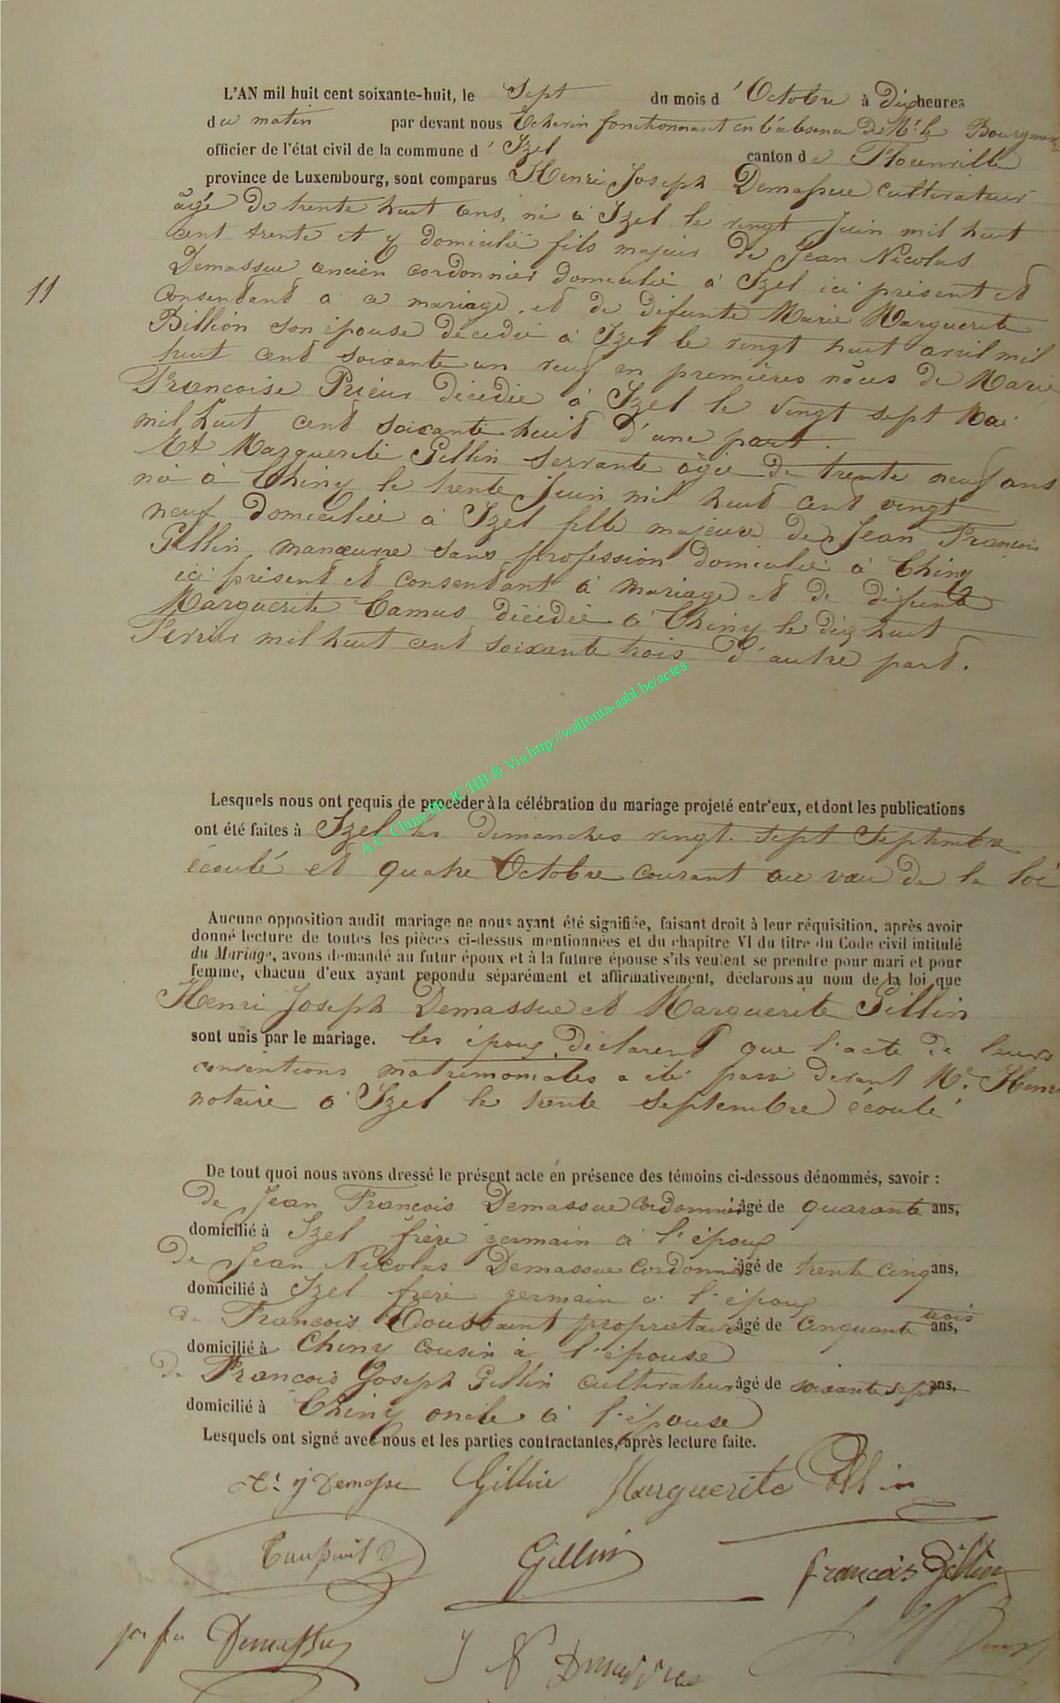 L'AN mil huit cent soixante-huit, le Sept du mois d'Octobre à dix heures
du matin par devant nous Echevin fonctionnant en l'absence de Mr le Bourgmestre
officier de l'état civil de la commune d'Izel canton de Florenville
province de Luxembourg, sont comparus Henri Joseph Demassue cultivateur
âgé de trente huit ans, né à Izel le vingt Juin mil huit
cent trente et y domicilié fils majeur de Jean Nicolas
Demassue ancien cordonnier domicilié à Izel ici présent et
consentant a ce mariage et de défunte Marie Marguerite
Billion son épouse décédée à Izel le vingt huit avril mil
huit cent soixante un veuf en premières nôces de Marie
Francoise Prieur décédée à Izel le vingt sept Mai
mil huit cent soixante huit d'une part.
Et Marguerite Gillin servante âgée de trente neuf ans
née à Chiny le trente Juin mil huit cent vingt
neuf domiciliée à Izel fille majeure de Jean François
Gillin, manœuvre sans profession domicilié à Chiny
ici présent et consentant à mariage et de défunte
Marguerite Camus décédée à Chiny le dix huit
Fevrier mil huit cent soixante trois d'autre part.
11
A.C. Chiny Ph. JC/HB ® Via http://wallonia-asbl.be/actes
Lesquels nous ont requis de procéder à la célébration du mariage projeté entr'eux, et dont les publications
ont été faites à Izel les Dimanches vingt sept Septembre
écoulé et quatre Octobre courant au vœu de la loi
Aucune opposition audit mariage ne nous ayant été signifiée, faisant droit à leur réquisition, après avoir
donné lecture de toutes les pièces ci-dessus mentionnées et du chapitre VI du titre du Code civil intitulé
du Mariage, avons demandé au futur époux et à la future épouse s'ils veulent se prendre pour mari et pour
femme, chacun d'eux ayant repondu séparément et affirmativement, déclarons au nom de la loi que
Henri Joseph Demassue et Marguerite Gillin
sont unis par le mariage. les époux déclarent que l'acte de leurs
conventions matrimoniales a été passé devant Me Henri
notaire à Izel le trente septembre écoulé
De tout quoi nous avons dressé le présent acte en présence des témoins ci-dessous dénommés, savoir :
de Jean François Demassue cordonnier âgé de quarante ans,
domicilié à Izel frère germain à l'époux
De Jean Nicolas Demassue cordonnier âgé de trente cinq ans,
domicilié à Izel frère germain à l'époux
de François Toussaint propriétaire âgé de cinquante trois ans,
domicilié à Chiny cousin à l'épouse
De François Joseph Gillin cultivateur âgé de soixante sept ans,
domicilié à Chiny oncle à l'épouse
Lesquels ont signé avec nous et les parties contractantes, après lecture faite.
h: j Demasse Gillin Marguerite Gillin
Toussaint Gillin francois Gillin
Demassue J N Demassue